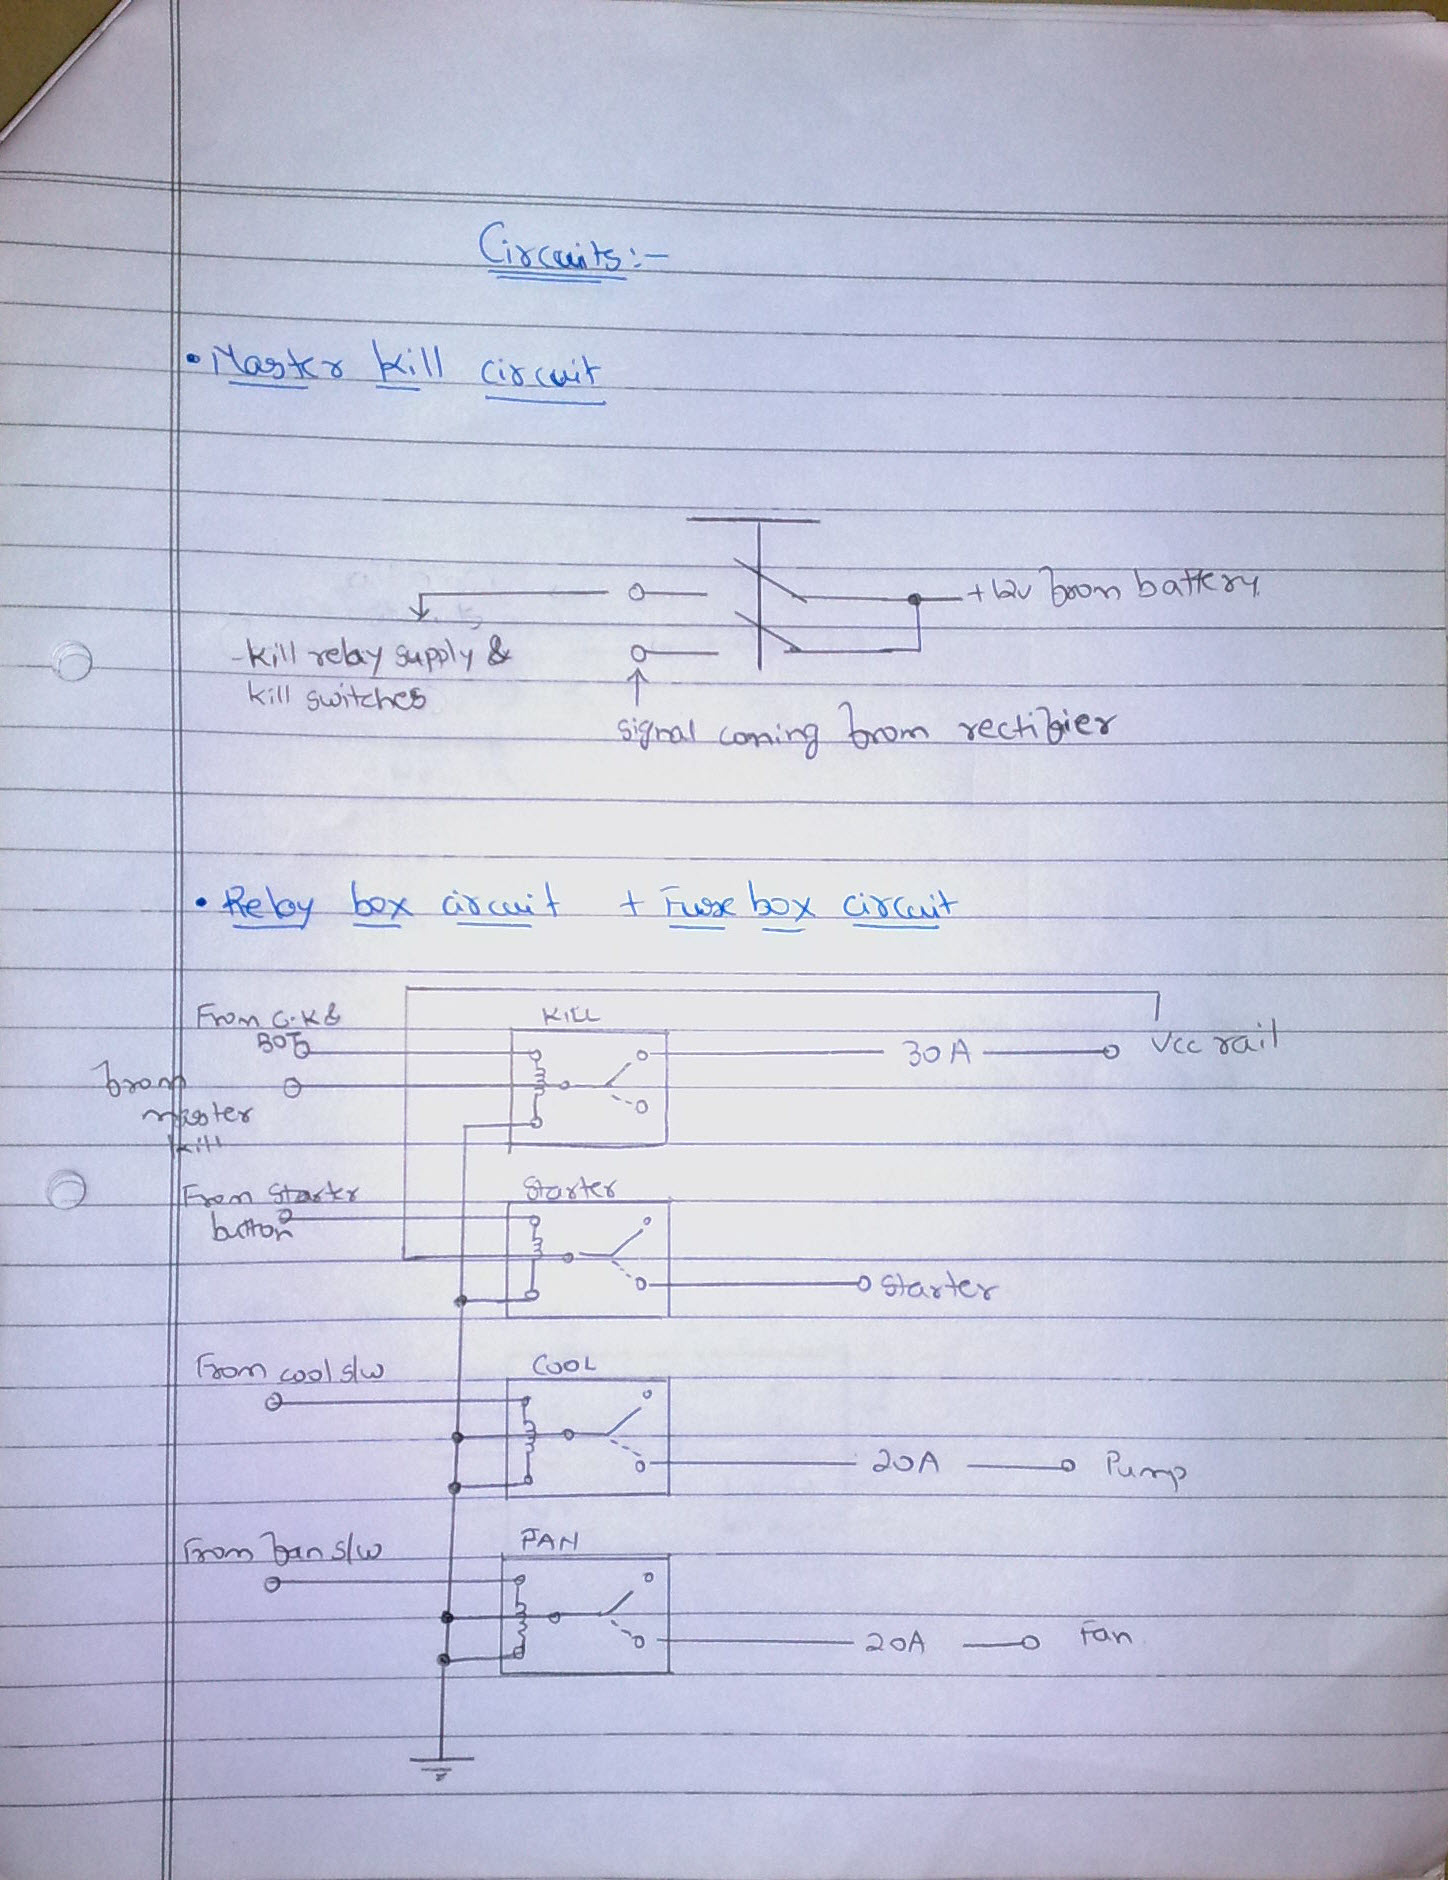 Circuits:-
• Master kill circuit
+12v from battery
kill relay supply &
kill switches
signal coming from rectifier
• Relay box circuit + Fuse box circuit
From C.K &
BOT
KILL
30A
Vcc rail
from
master
kill
From Starter
button
Starter
Starter
From cool s/w
COOL
20A
Pump
From fan s/w
FAN
20A
Fan